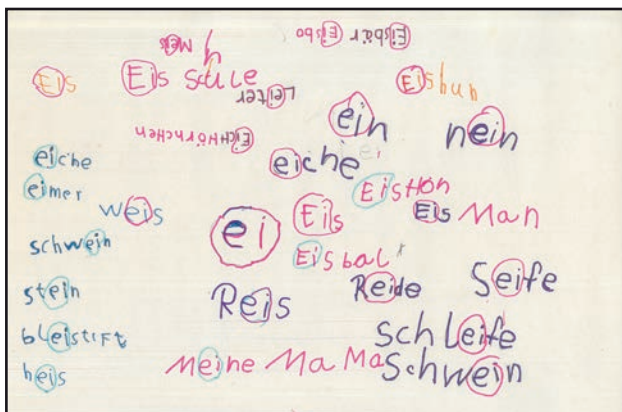 Meis
Eisbär Eisbo
Eis
Eis
Eishun
Leiter
ein
nein
EicHHÖRNCHEN
eiche
eiche
eimer
EisHÖn
weis
Eis
Eis Man
ei
schwein
Eisbal
stein
Reis
Reide
Seife
bleistift
schleife
heis
Meine MaMa
Schwein